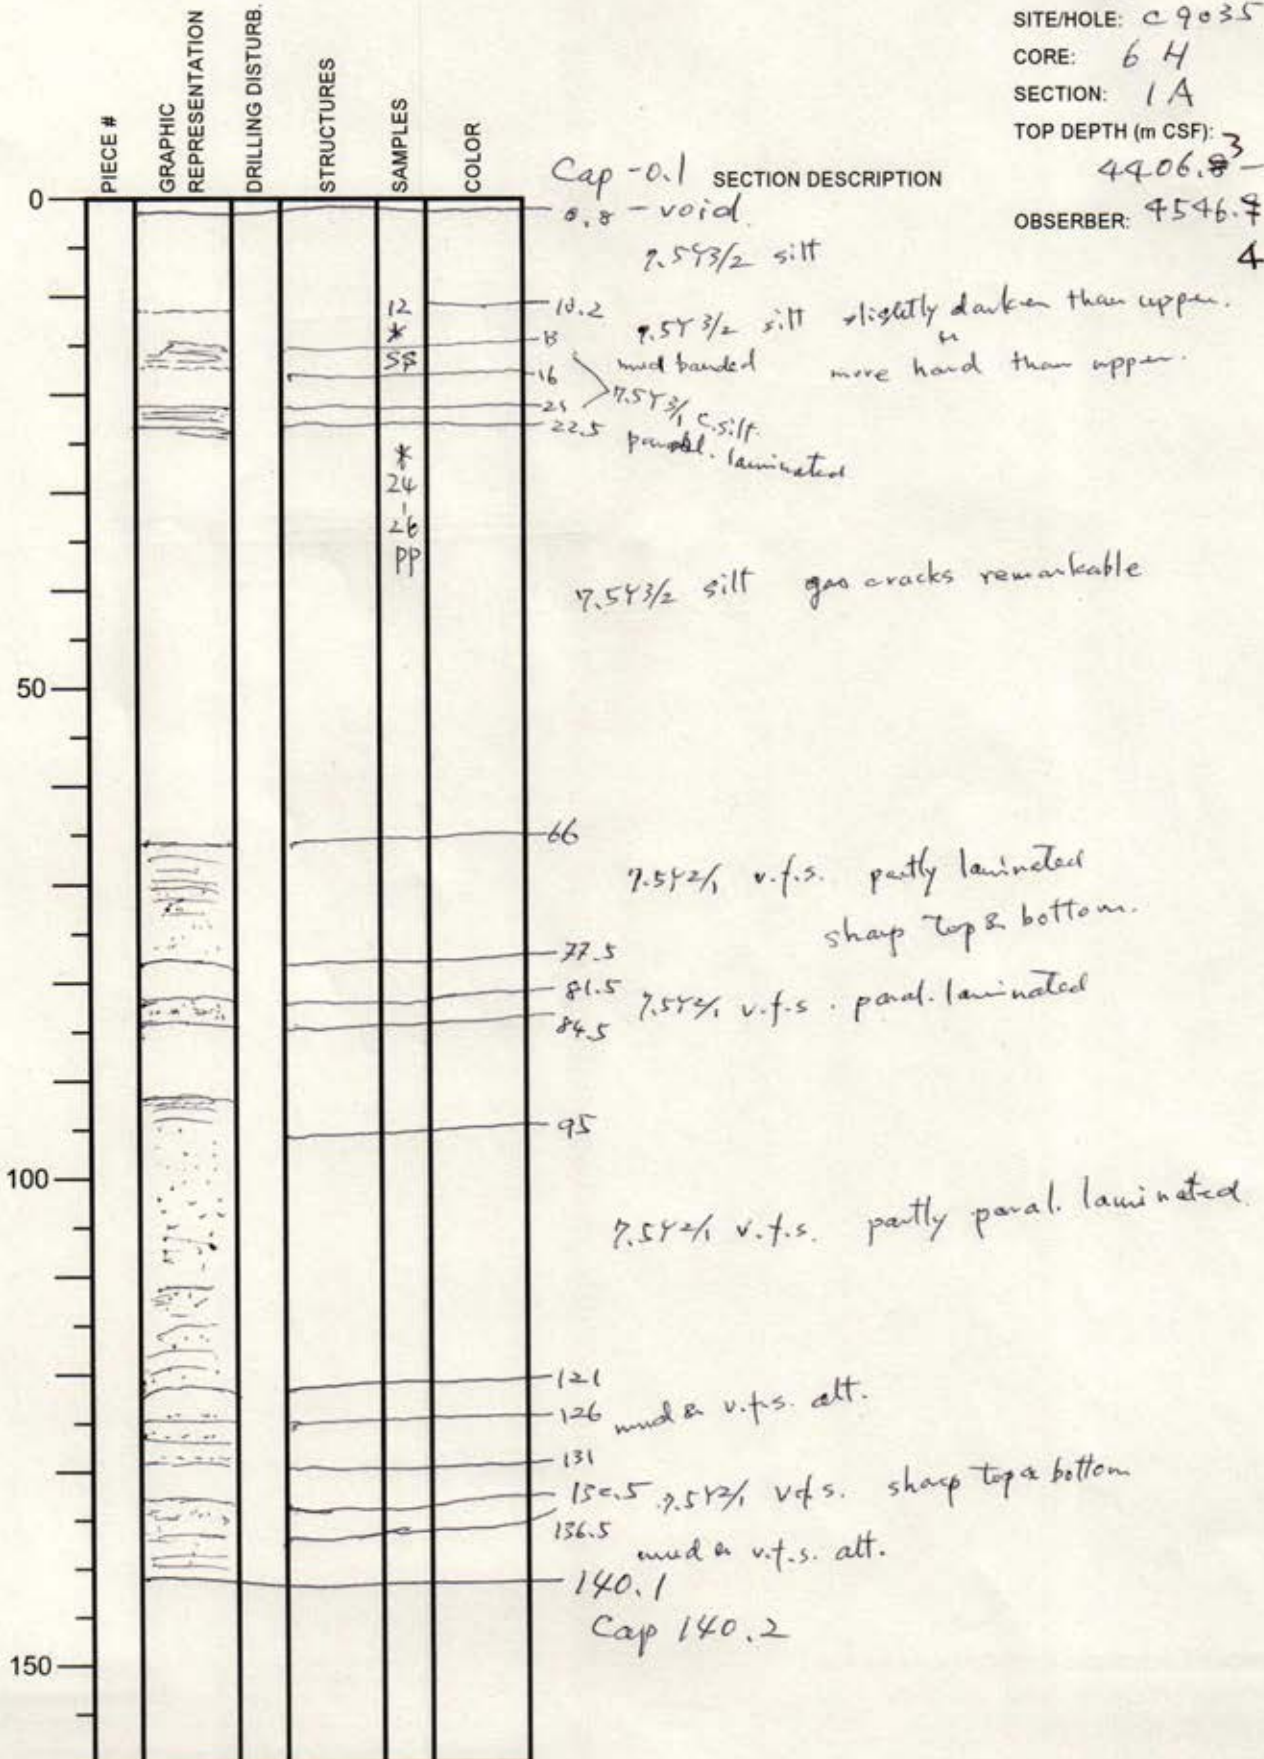 SITE/HOLE: C9035
CORE: 6 H
SECTION: 1A
TOP DEPTH (m CSF): 3
4406.8 -
OBSERBER: 4546.9
4
PIECE #
GRAPHIC REPRESENTATION
DRILLING DISTURB.
STRUCTURES
SAMPLES
COLOR
Cap -0.1 SECTION DESCRIPTION
0
0.8 - void.
7.5Y3/2 silt
12
*
SS
10.2
7.5Y 3/2 silt slightly darker than upper.
mud banded more hard than upper.
16
7.5Y3/1 c.silt.
22.5 paral. laminated
*
24
26
PP
7.5Y3/2 silt gas cracks remarkable
50
66
7.5Y2/1 v.f.s. partly laminated
sharp top & bottom.
77.5
81.5 7.5Y2/1 v.f.s. paral. laminated
84.5
95
100
7.5Y2/1 v.f.s. partly paral. laminated.
121
126 mud & v.f.s. alt.
131
7.5Y2/1 vfs. sharp top & bottom
136.5
mud & v.f.s. alt.
140.1
Cap 140.2
150